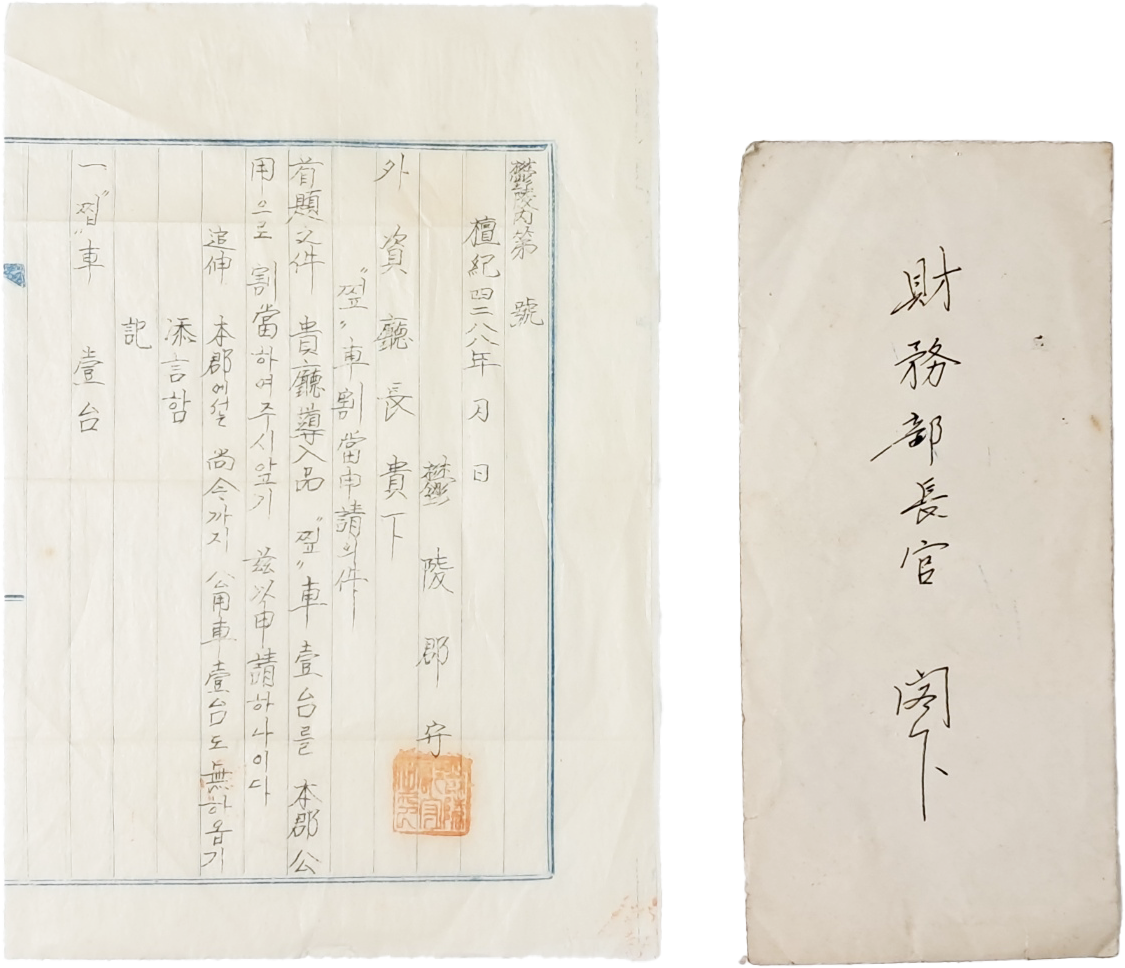 鬱陵内第 號
檀紀四二八八年 月 日
鬱陵郡守
外資廳長貴下
“찦”車割當申請의件
首題之件 貴廳導入品 “찦”車壹台를 本郡公
用으로 割當하여주시압기 玆以申請하나이다
追伸 本郡에섣 尚今까지 公用車壹台도 無하옵기
添言함
記
一 “찦”車 壹台
財務部長官 閣下